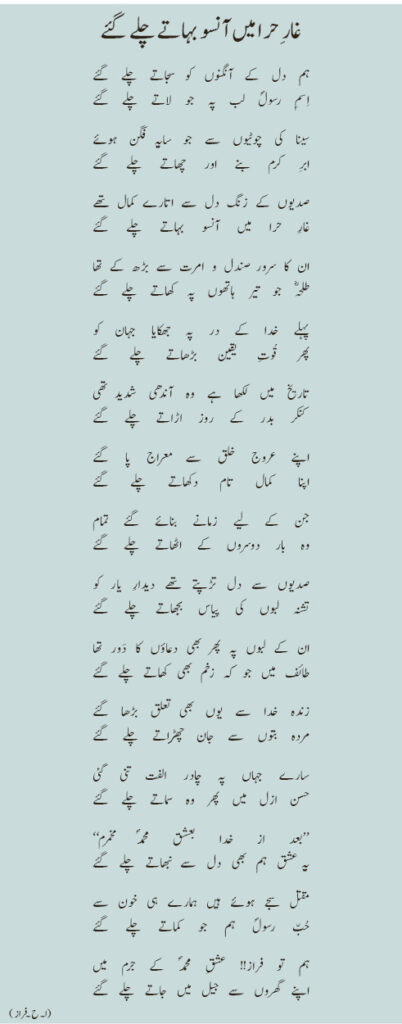 غارِ حرا میں آنسو بہاتے چلے گئے
ہم دل کے آنگنوں کو سجاتے چلے گئے
اِسمِ رسولؐ لب پہ جو لاتے چلے گئے
سینا کی چوٹیوں سے جو سایہ فگن ہوئے
ابرِ کرم بنے اور چھاتے چلے گئے
صدیوں کے زنگ دل سے اتارے کمال تھے
غارِ حرا میں آنسو بہاتے چلے گئے
ان کا سرور صندل و امرت سے بڑھ کے تھا
طلحہؓ جو تیر ہاتھوں پہ کھاتے چلے گئے
پہلے خدا کے در پہ جھکایا جہان کو
پھر قُوتِ یقین بڑھاتے چلے گئے
تاریخ میں لکھا ہے وہ آندھی شدید تھی
کنکر بدر کے روز اڑاتے چلے گئے
اپنے عروجِ خلق سے معراج پا گئے
اپنا کمال تام دکھاتے چلے گئے
جن کے لیے زمانے بنائے گئے تمام
وہ بار دوسروں کے اٹھاتے چلے گئے
صدیوں سے دل تڑپتے تھے دیدارِ یار کو
تشنہ لبوں کی پیاس بجھاتے چلے گئے
ان کے لبوں پہ پھر بھی دعاؤں کا دَور تھا
طائف میں جو کہ زخم بھی کھاتے چلے گئے
زندہ خدا سے یوں بھی تعلق بڑھا گئے
مردہ بتوں سے جان چھڑاتے چلے گئے
سارے جہاں پہ چادرِ الفت تنی گئی
حسنِ ازل میں پھر وہ سماتے چلے گئے
’’بعد از خدا بعشقِ محمدؐ مخمرم‘‘
یہ عشق ہم بھی دل سے نبھاتے چلے گئے
مقتل سجے ہوئے ہیں ہمارے ہی خون سے
حُبِّ رسولؐ ہم جو کماتے چلے گئے
ہم تو فراز!! عشقِ محمدؐ کے جرم میں
اپنے گھروں سے جیل میں جاتے چلے گئے
(ا۔ح۔فراز)